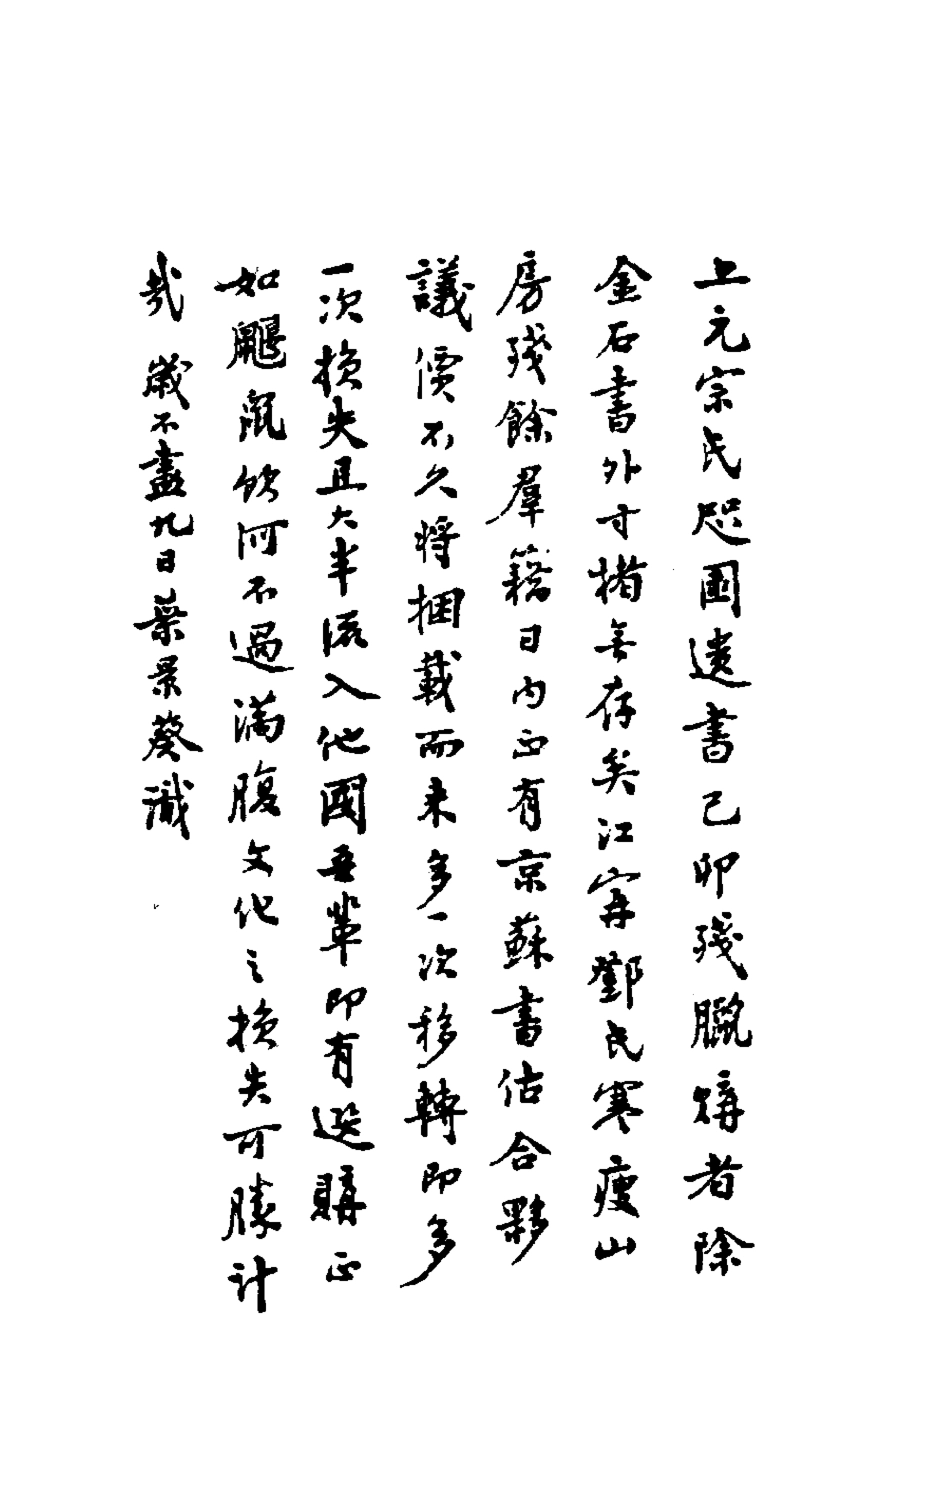 上元宗氏咫園遺書己卯殘臘購者除
金石書外寸楮無存矣江寧鄧氏寒瘦山
房殘餘羣籍日內正有京蘇書估合夥
議價不久將捆載而來多一次移轉即多
一次損失且大半流入他國吾輩即有選購正
如鼴鼠飲河不過滿腹文化之損失可勝計
哉 歲不盡九日葉景葵識